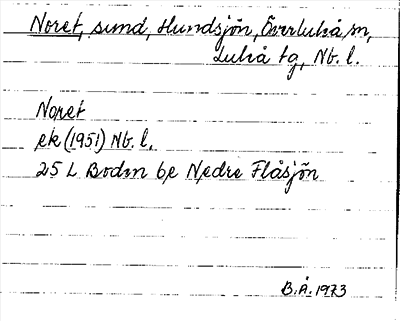 Noret, sund, Hundsjön, Överluleå sn,
Luleå tg, Nb. l.
Noret
ek (1951) Nb. l.
25 L Boden be Nedre Flåsjön
B.Å. 1973